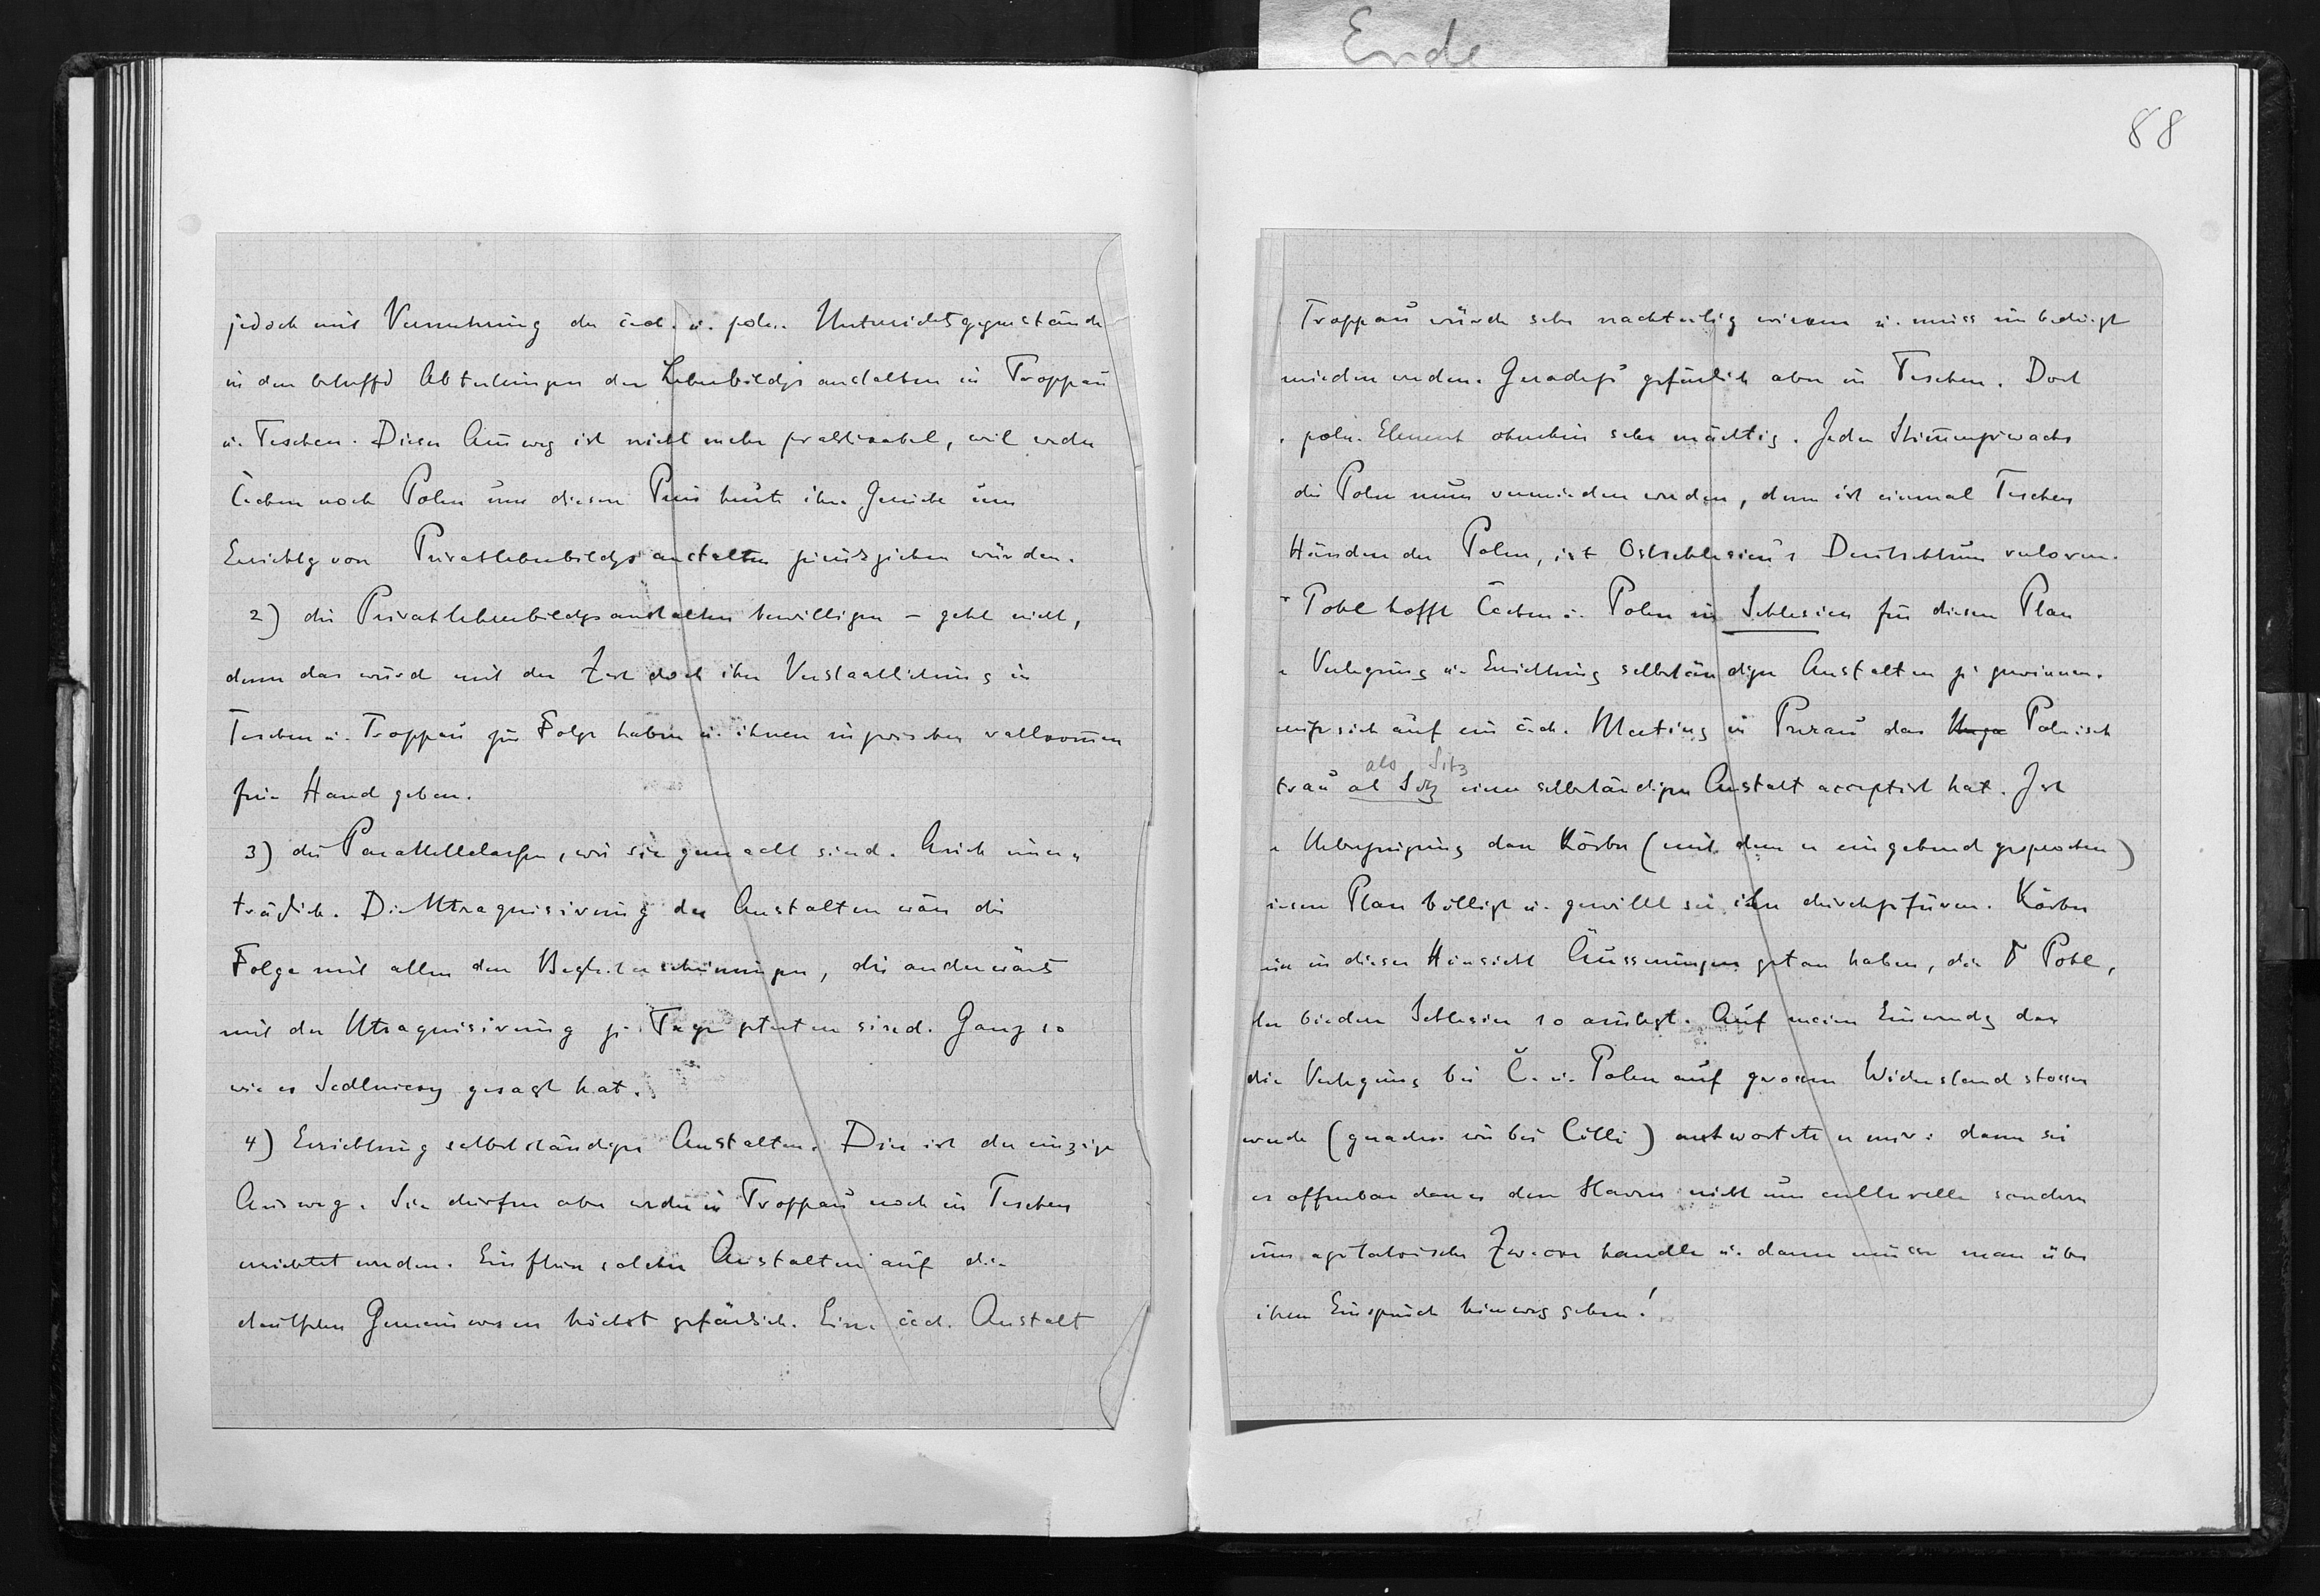 Ende
88
jedoch mit Vermehrung der čech. u. poln. Unterrichtsgegenstände
in den betreffd Abteilungen der Lehrerbildgsanstalten in Troppau
u. Teschen. Dieser Ausweg ist nicht mehr praktikabel, weil weder
Čechen noch Polen um diesen Preis heute ihre Gesuche um
Errichtg von Privatlehrerbildgsanstalten zurückziehen würden.
2) die Privatlehrerbildgsanstalten bewilligen – geht nicht,
denn das würde mit der Zeit doch ihre Verstaatlichung in
Teschen u. Troppau zur Folge haben u. ihnen inzwischen vollkommen
freie Hand geben.
3) die Parallelklassen, wie sie gemacht sind. Auch uner-
träglich. Die Utraquisirung der Anstalten wäre die
Folge mit allen den Begleiterscheinungen, die anderwärts
mit der Utraquisirung zu Tage getreten sind. Ganz so
wie es Sedlnicky gesagt hat.
4) Errichtung selbstständiger Anstalten. Dies ist der einzige
Ausweg. Sie dürfen aber weder in Troppau noch in Teschen
errichtet werden. Einfluss solcher Anstalten auf die
deutschen Gemeinwesen höchst gefärlich. Eine čech. Anstalt
Troppau würde sehr nachteilig wirken u. muss unbedingt
mieden werden. Geradezu gefärlich aber in Teschen. Dort
poln. Element ohnehin sehr mächtig. Jeder Stimmenzuwachs
die Polen muss vermieden werden, denn ist einmal Teschen
Händen der Polen, ist Ostschlesien's Deutschtum verloren.
Pohl hofft Čechen u. Polen in Schlesien für diesen Plan
Verlegung u. Errichtung selbständiger Anstalten zu gewinnen.
sich auf ein čech. Meeting in Prerau das Polnisch
als Sitz
trau als Sitz einer selbständigen Anstalt acceptirt hat. Ist
Ueberzeugung dass Körber (mit dem er eingehend gesprochen)
iesen Plan billigt u. gewillt sei ihn durchzufüren. Körber
in dieser Hinsicht Äusserungen getan haben, die D Pohl,
der biedere Schlesier so auslegt. Auf meine Einwendg dass
die Verlegung bei Č. u. Polen auf grossen Widerstand stossen
werde (geradeso wie bei Cilli) antwortete er mir: dann sei
es offenbar dass es den Slaven nicht um culturelle sondern
um agitatorische Zwecke handle u. dann müsse man über
ihren Einspruch hinweg gehen!